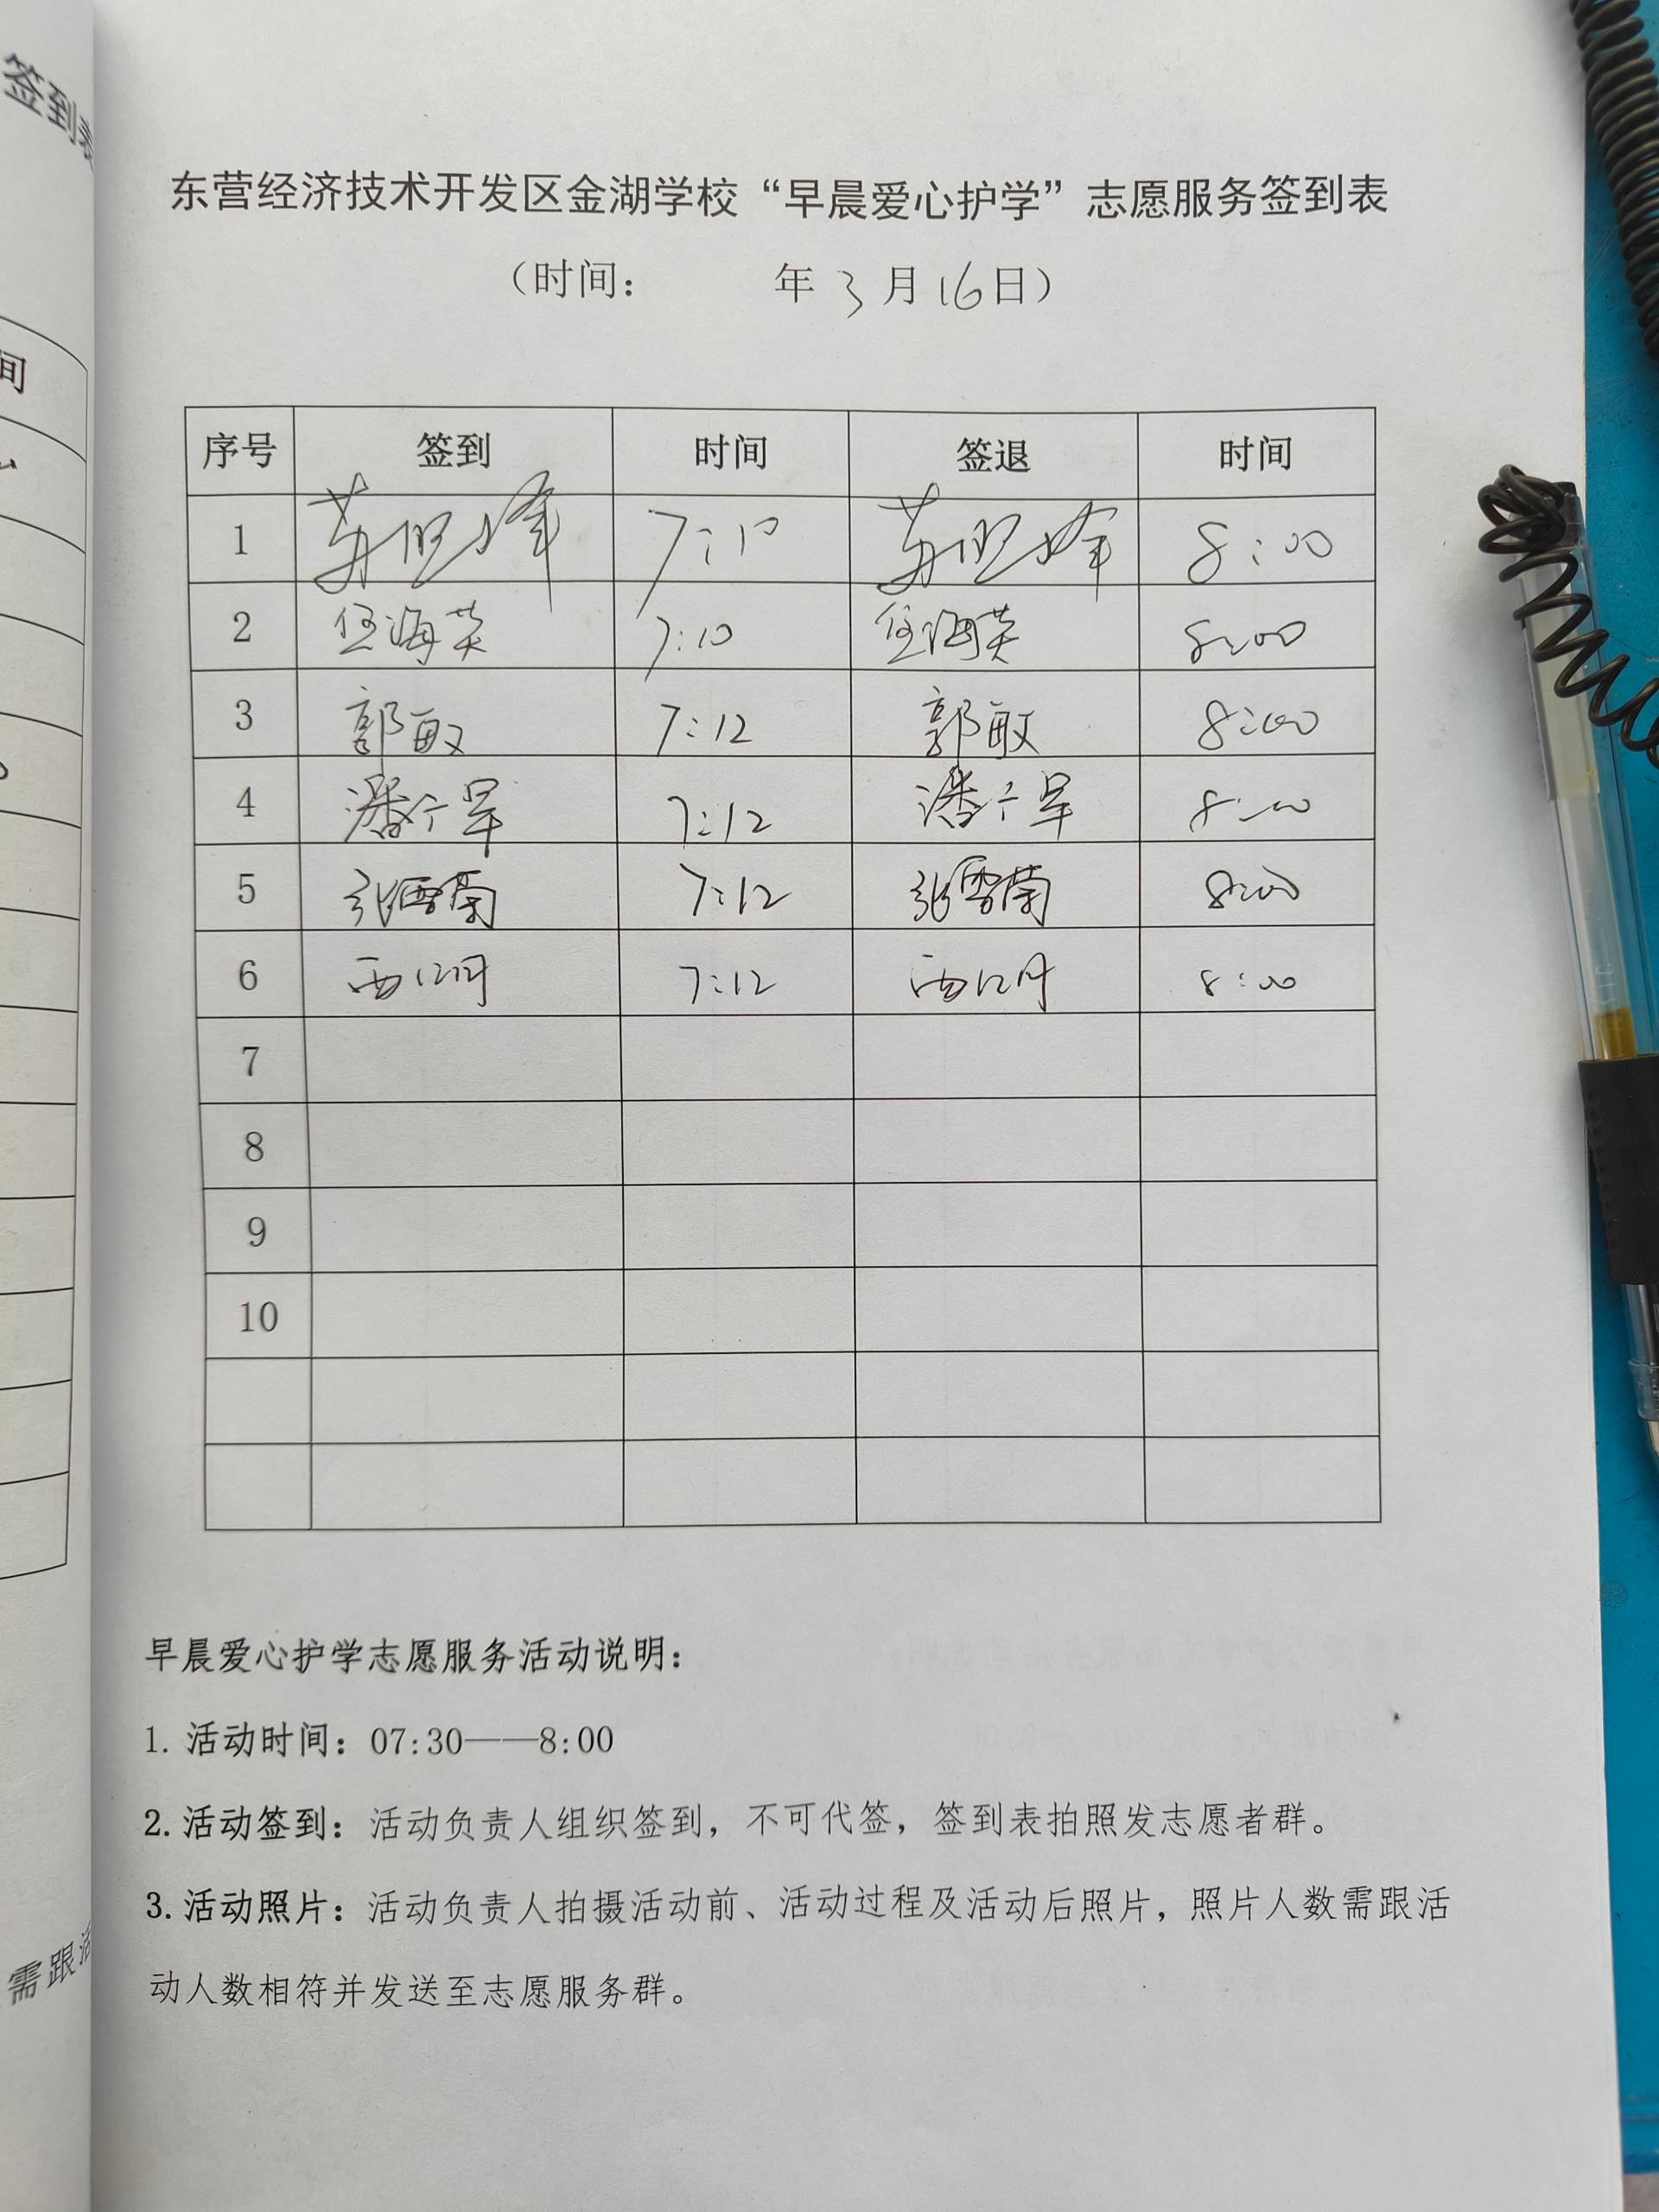 签到表
间
需跟活
东营经济技术开发区金湖学校“早晨爱心护学”志愿服务签到表
（时间：　　　年 3 月 16日）
序号 签到 时间 签退 时间
1 7:10 8:00
2 任海英 7:10 任海英 8:00
3 郭敏 7:12 郭敏 8:00
4 7:12 8:00
5 张雪菊 7:12 张雪菊 8:00
6 7:12 8:00
7
8
9
10
早晨爱心护学志愿服务活动说明：
1. 活动时间：07:30——8:00
2. 活动签到：活动负责人组织签到，不可代签，签到表拍照发志愿者群。
3. 活动照片：活动负责人拍摄活动前、活动过程及活动后照片，照片人数需跟活
动人数相符并发送至志愿服务群。